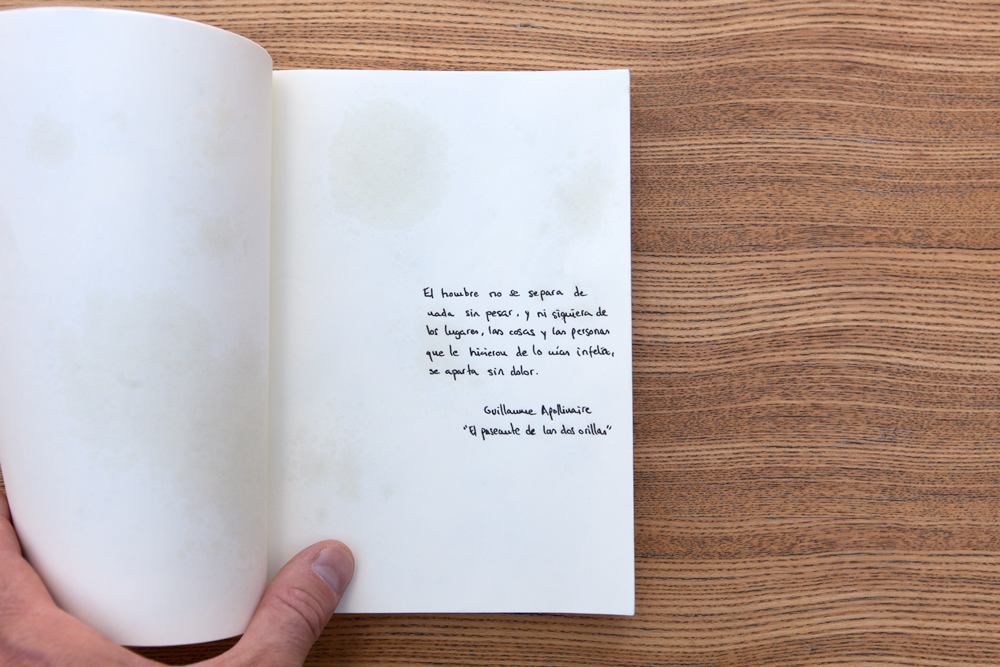 El hombre no se separa de
nada sin pesar, y ni siquiera de
los lugares, las cosas y las personas
que le hicieron de lo más infeliz,
se aparta sin dolor.
Guillaume Apollinaire
"El paseante de las dos orillas"